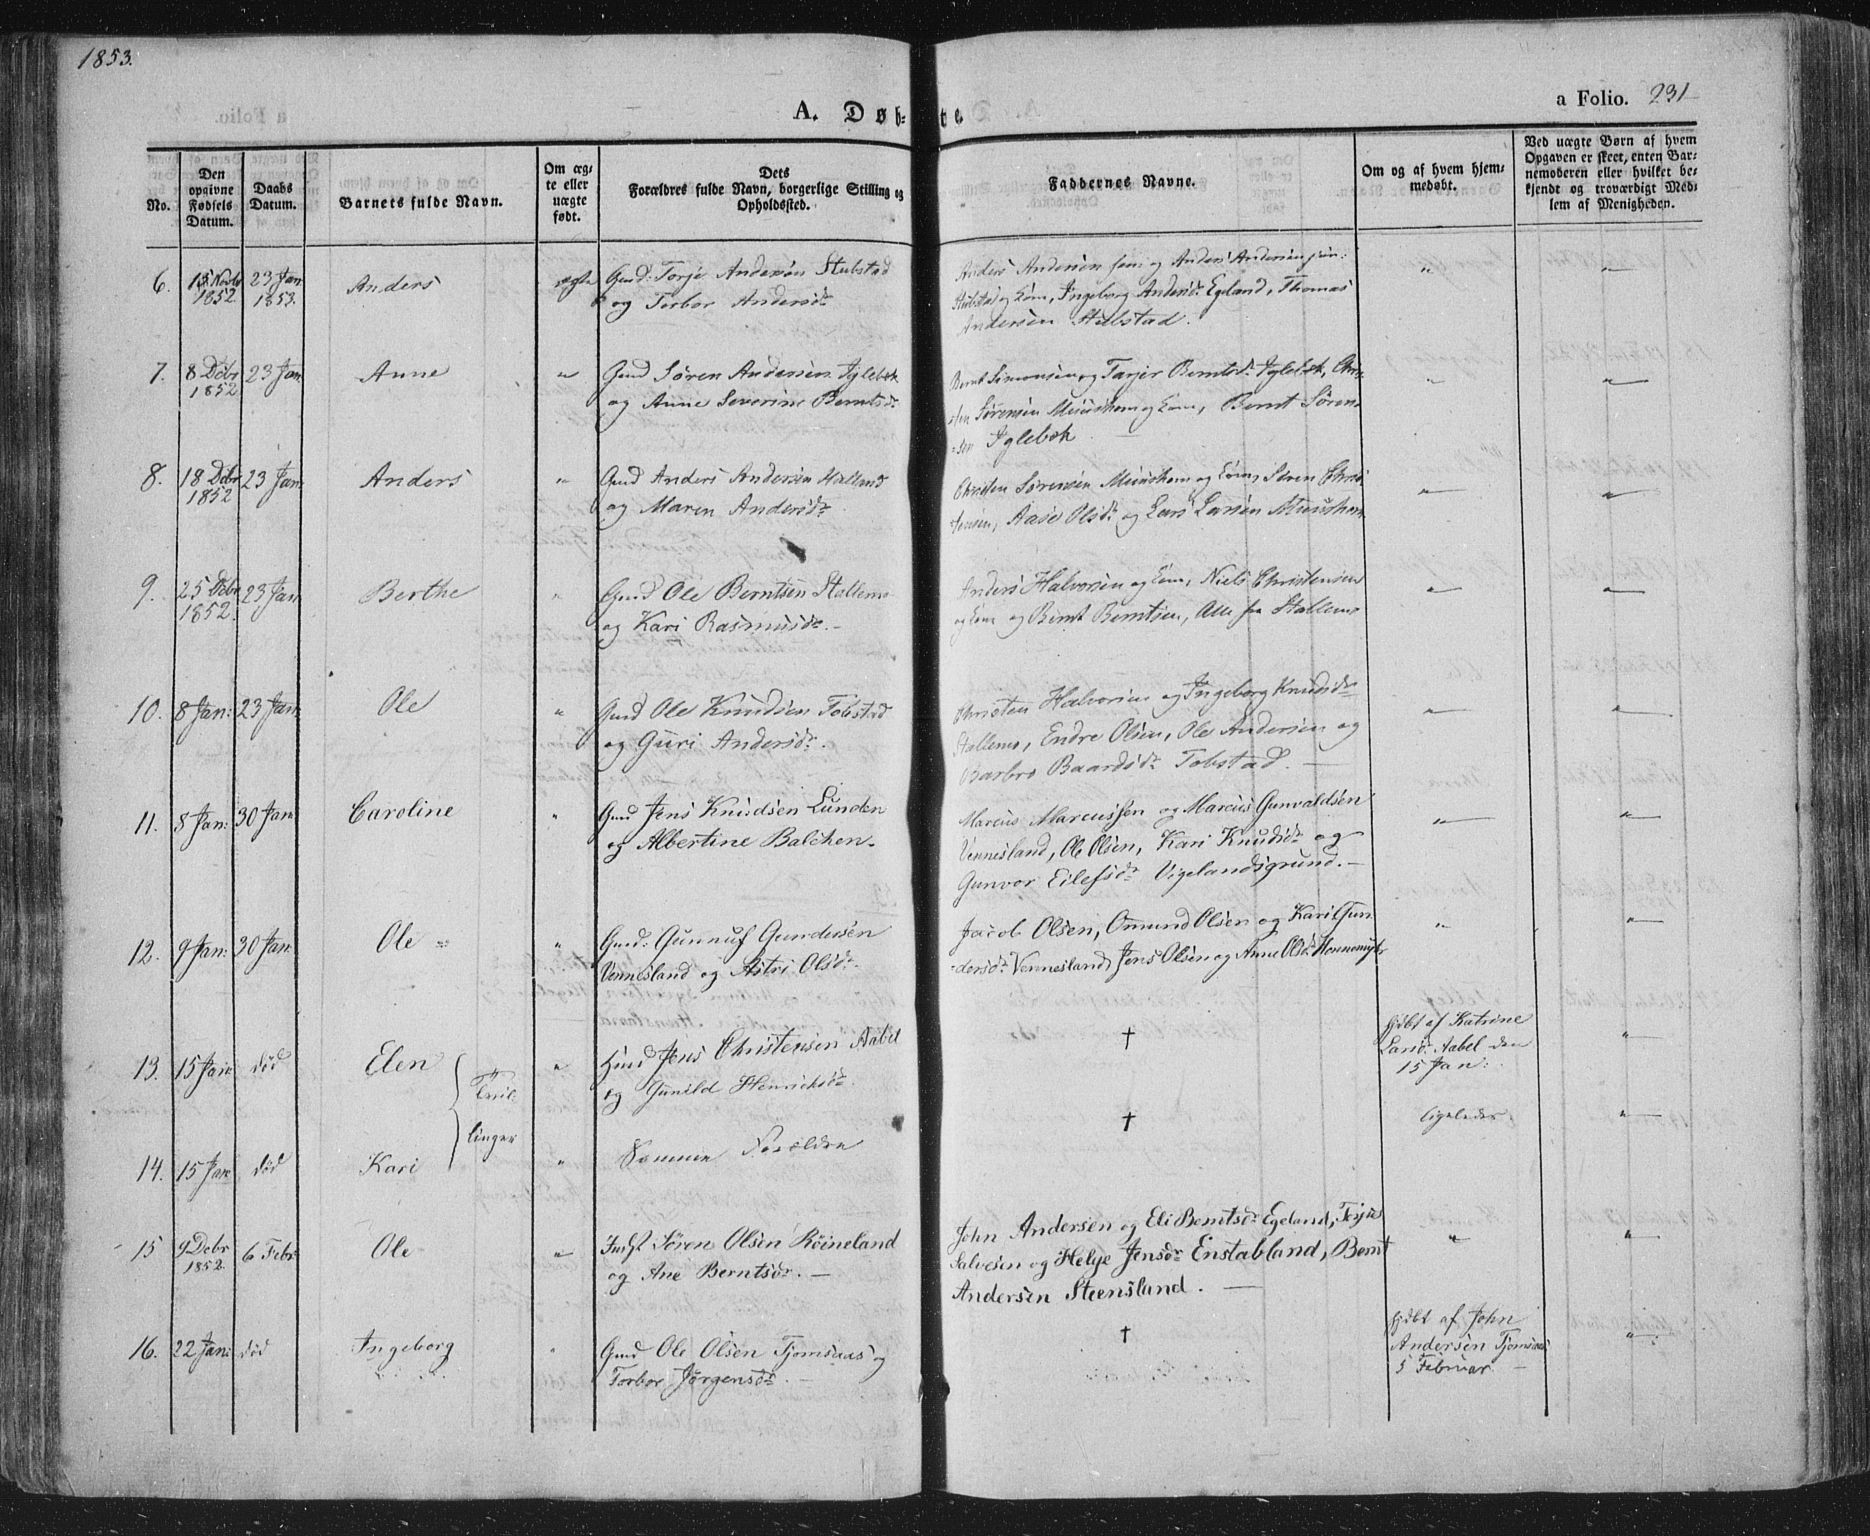 1853.
A. Døb-te.
a Folio. 231
No.
Den opgivne Fødsels Datum.
Daabs Datum.
Barnets fulde Navn.
Om ægte eller uægte født.
Dets Forældres fulde Navn, borgerlige Stilling og Opholdssted.
Faddernes Navne.
Om og af hvem hjemmedøbt.
Ved uægte Børn af hvem Opgaven er skeet, enten Barnemoderen eller hvilket bekjendt og troværdigt Medlem af Menigheden.
6. 15 Novbr 1852 23 Jan 1853. Anders ægte Gmd: Torje Andersen Stubstad
og Torbor Andersdr
Anders Andersen sen: og Anders Andersen jun:
Stubstad og Kone, Ingeborg Andersdr Egeland, Thomas
Andersen Stubstad.
7. 8 Debr 1852 23 Jan Anne " Gmd Sören Andersen Iglebæk
og Anne Severine Berntsdr
Bernt Simonsen og Tarjer Berntsdr Iglebæk, Chri-
sten Sørensen Muushom og Kone, Bernt Søren-
sen Iglebæk
8. 18 Debr 1852 23 Jan: Anders " Gmd Anders Andersen Halland
og Maren Andersdr
Christen Sørensen Muushom og Kone, Søren Chri-
stensen, Aase Olsdr og Lars Larsen Muushom
9. 25 Debr 1852. 23 Jan Berthe " Gmd Ole Berntsen Stallemo
og Kari Rasmusdr. -
Anders Halvorsen og Kone, Niels Christensen
og Kone og Bernt Berntsen, Alle fra Stallemo
10. 8 Jan: 23 Jan: Ole " Gmd Ole Knudsen Tobstad
og Guri Andersdr.
Christen Halvorsen og Ingeborg Knudsdr
Stallemo, Endre Olsen, Ole Andersen og
Barbro Baardsdr Tobstad. -
11. 8 Jan: 30 Jan: Caroline " Gmd Jens Knudsen Lunden
og Albertine Balchen.
Marcus Marcussen og Marcus Gunvaldsen
Vennesland, Ole Olsen, Kari Knudsdr og
Gunvor Eilefsdr Vigelandsgrund. -
12. 9 Jan: 30 Jan: Ole " Gmd: Gunnuf Gundersen
Vennesland og Astri Olsdr.
Jacob Olsen, Omund Olsen og Kari Gun-
dersdr Vennesland, Jens Olsen og Anne Olsdr Honnemyr
13. 15 Jan: død Elen " Huusmd Jens Christensen Aabel
og Gunild Henriksdr
†
hjdbt af Katrine
Larsdr Aabel den
15 Jan:
Tvil-
linger
14. 15 Jan død Kari " Samme Forældre
†
ligeledes
15 9 Debr 1852. 6 Febr Ole " Indst Sören Olsen Röineland
og Ane Berntsdr. -
John Andersen og Eli Berntsdr Egeland, Terjus
Salvesen og Helge Jensdr Enstabland, Bernt
Andersen Steensland. -
16. 22 Jan: død Ingeborg " Gmd Ole Olsen Tjomsaas og
Torbor Jörgensdr. -
†
hjdbt af John
Andersen Tjomsaas
5 Februar. -